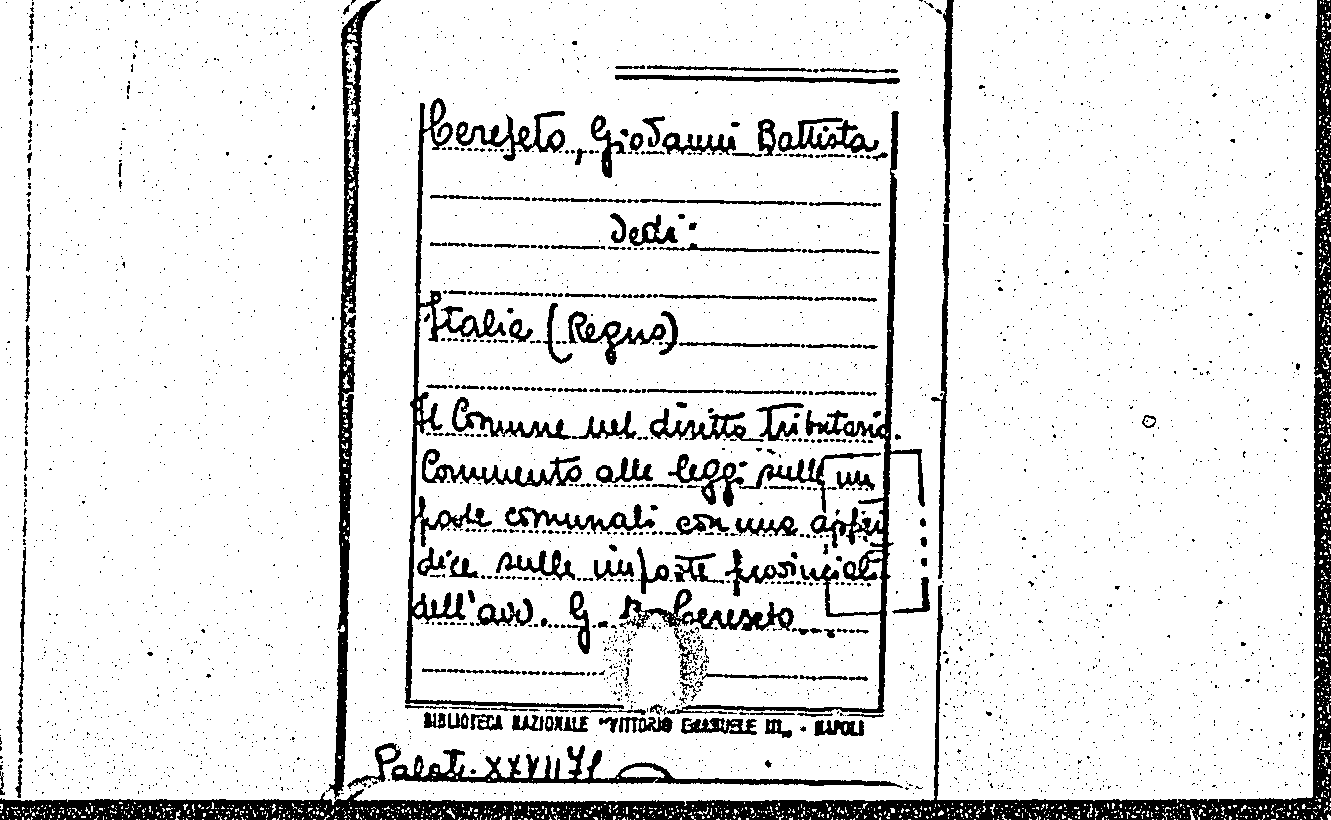 Cereseto, Giovanni Battista.
Vedi:
Italia (Regno)
Il Comune nel diritto tributario.
Commento alle leggi sulle im
poste comunali con una appen
dice sulle imposte provinciali
dell'avv. G. B. Cereseto
BIBLIOTECA NAZIONALE "VITTORIO EMANUELE III" - NAPOLI
Palat. XXVII 71